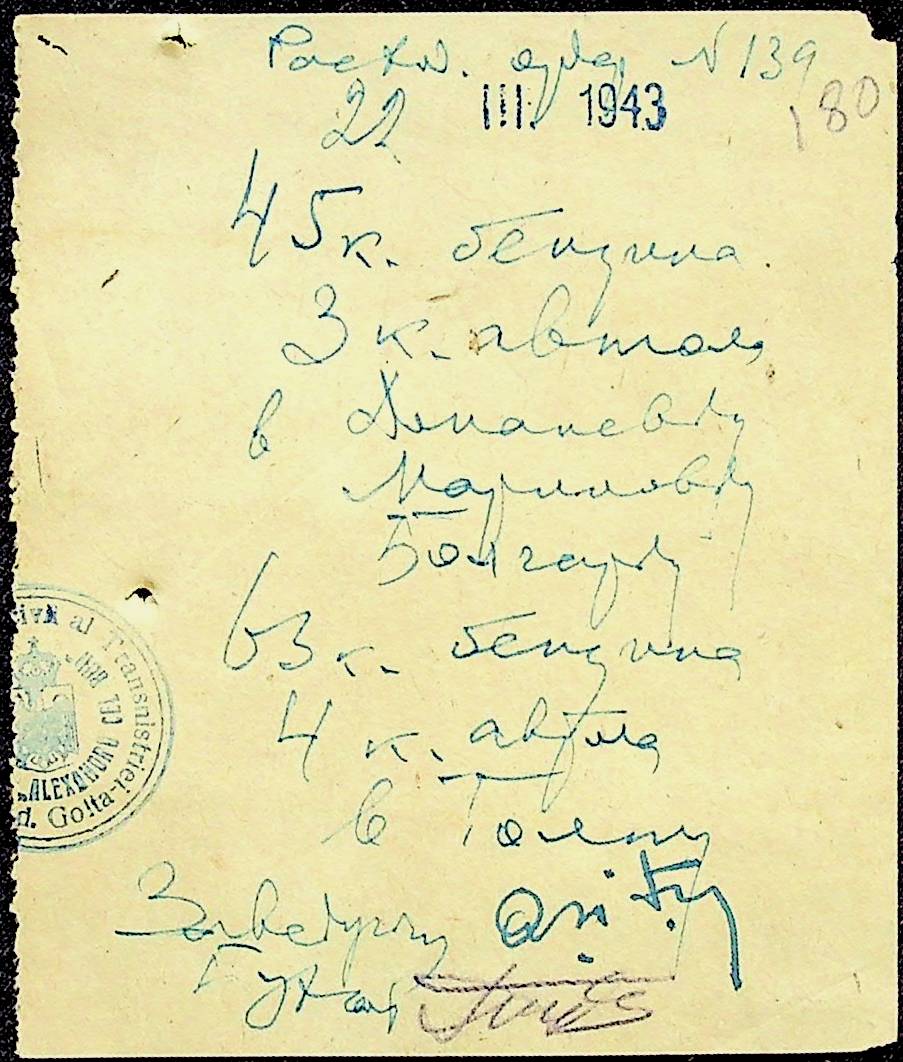 Расход. ордер № 139
180
22 III. 1943
45 к. бензина.
3 к. автола
в Доманевку
Мариновку
Болгарку
63 к. бензина
4 к. автола
в Голту
Заведующ
al Transnistriei
"ALEXANDRU CEL BUN"
d. Golta